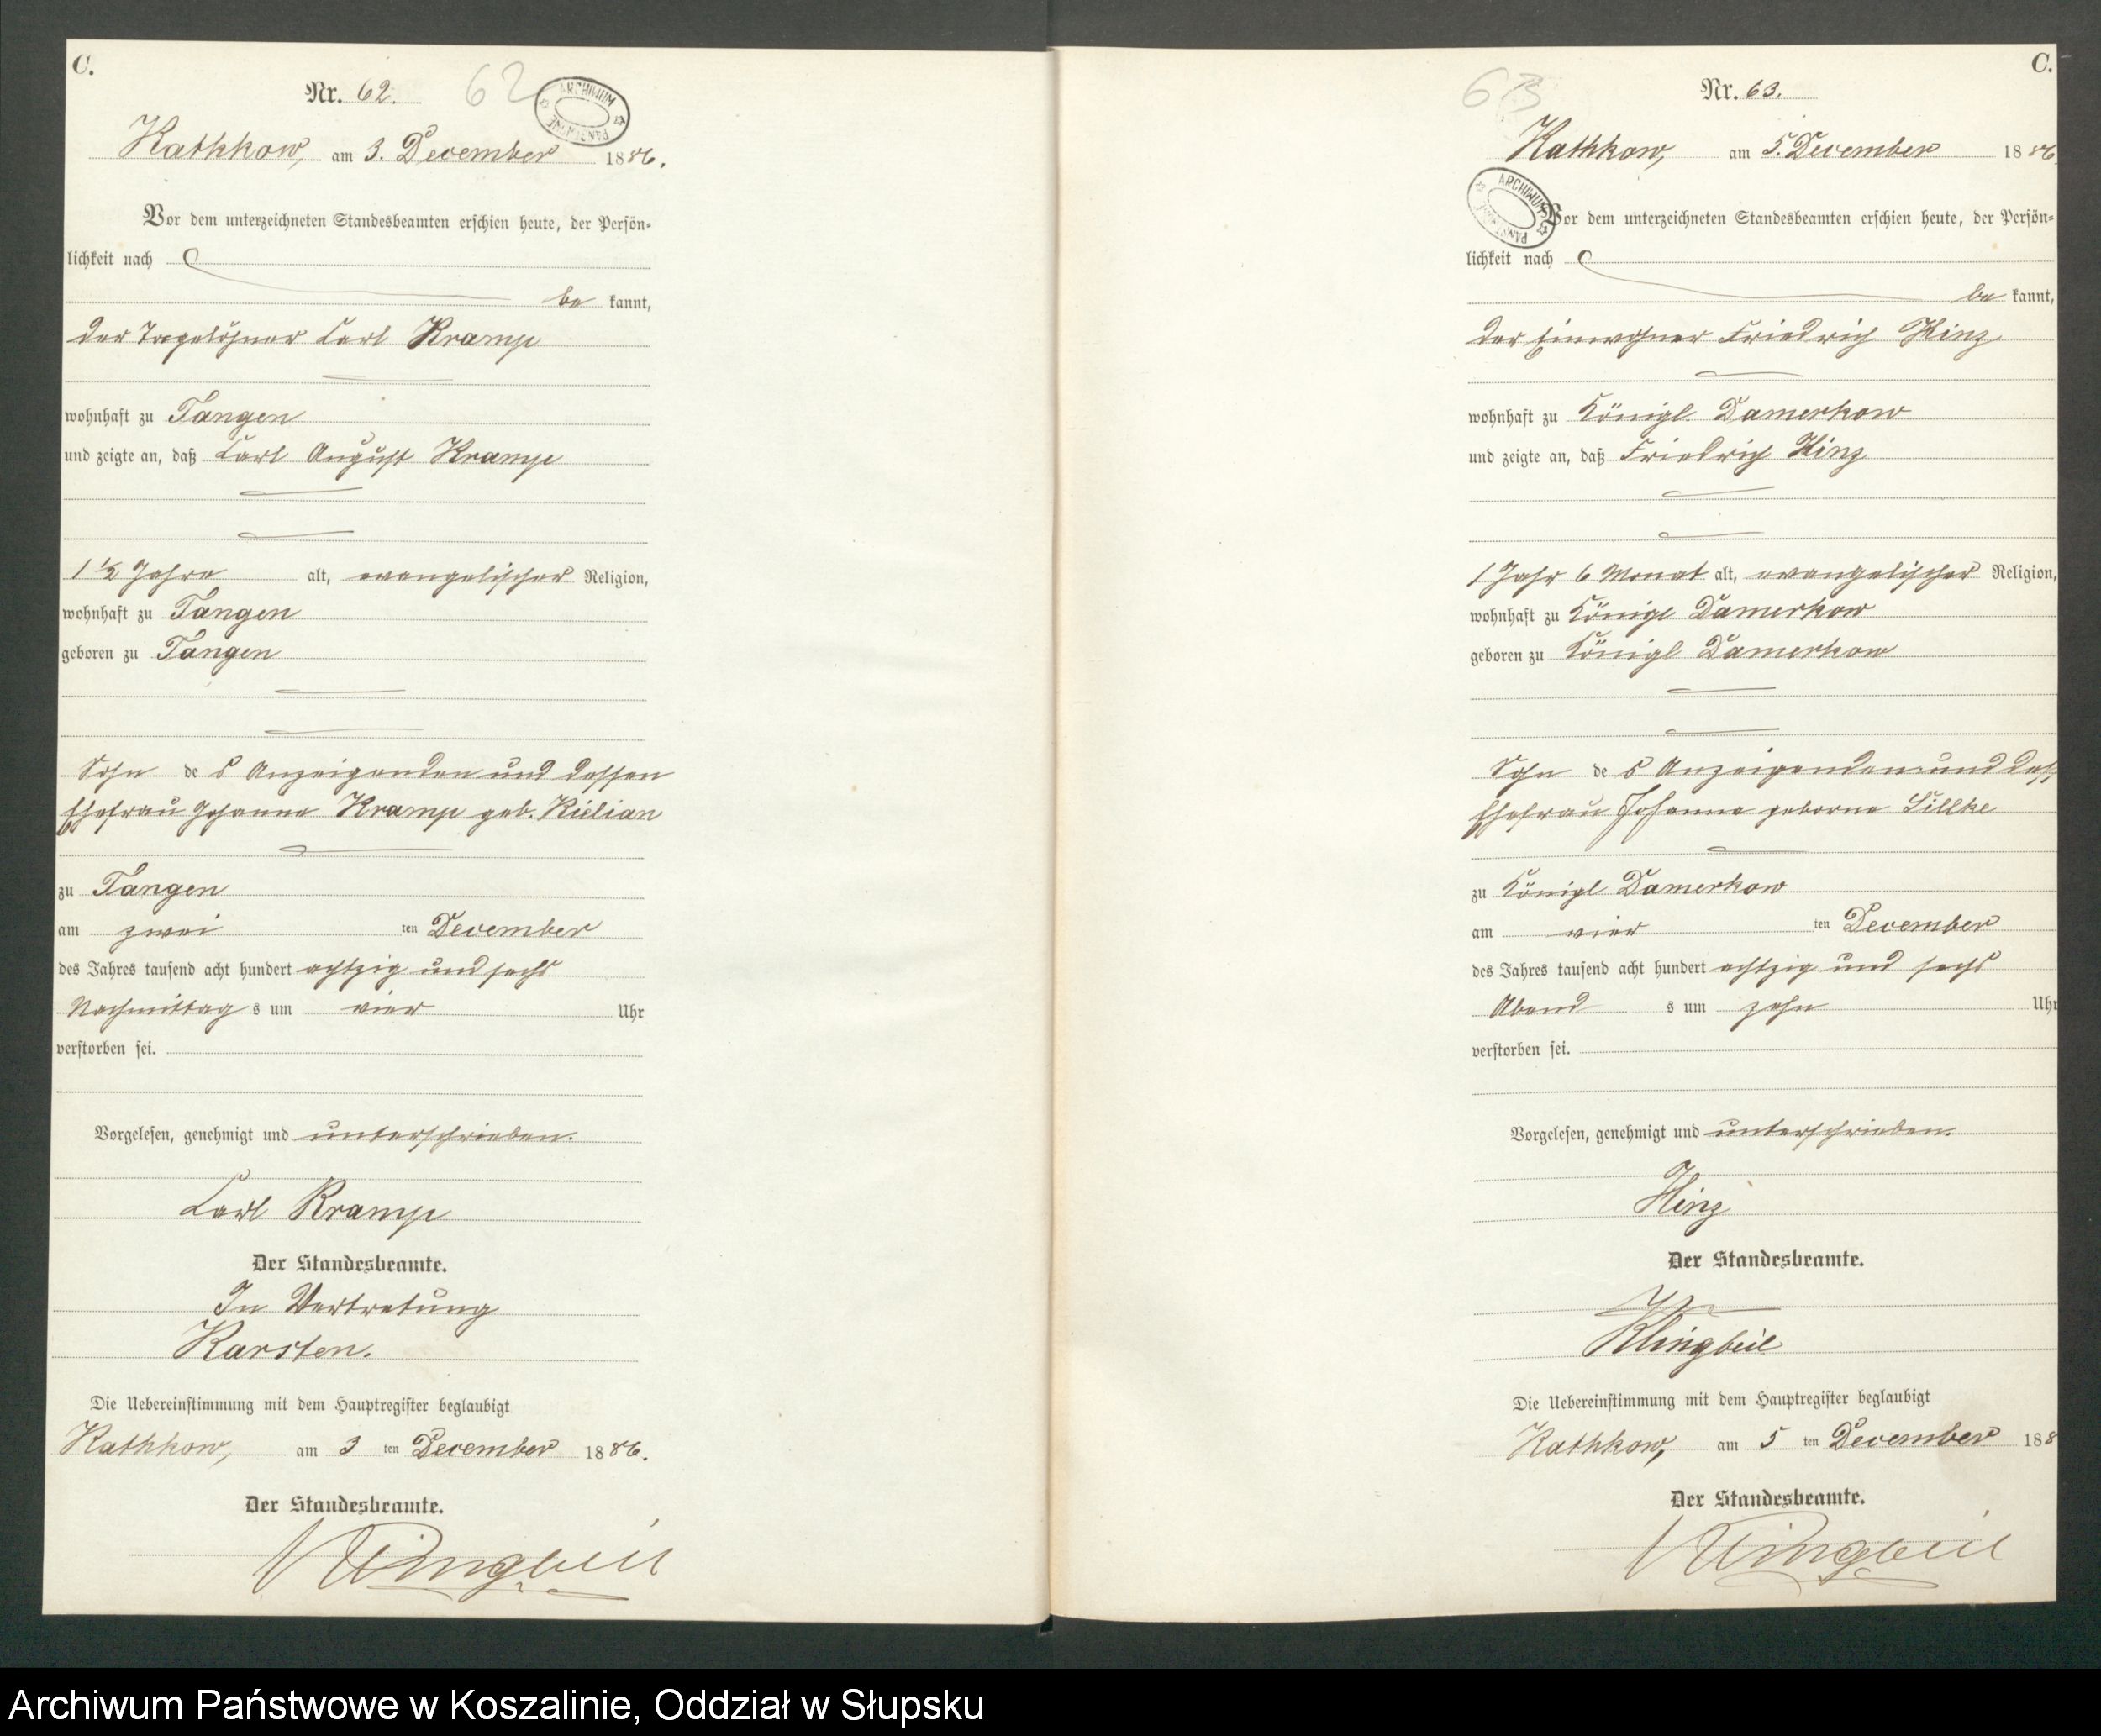 C.
Nr. 62.
62
ARCHIWUM PAŃSTWOWE
Kathkow, am 3. December 1886.
Vor dem unterzeichneten Standesbeamten erschien heute, der Persön-
lichkeit nach
be kannt,
der Tagelöhner Carl Kramp
wohnhaft zu Tangen
und zeigte an, daß Carl August Kramp
1 1/2 Jahre alt, evangelischer Religion,
wohnhaft zu Tangen
geboren zu Tangen
Sohn de s Anzeigenden und dessen
Ehefrau Johanna Kramp geb. Kielian
zu Tangen
am zwei ten December
des Jahres tausend acht hundert achtzig und sechs
Nachmittag s um vier Uhr
verstorben sei.
Vorgelesen, genehmigt und unterschrieben.
Carl Kramp
Der Standesbeamte.
In Vertretung
Karsten.
Die Uebereinstimmung mit dem Hauptregister beglaubigt
Kathkow, am 3 ten December 1886.
Der Standesbeamte.
Klingbeil
C.
Nr. 63.
63
Kathkow, am 5. December 1886
ARCHIWUM PAŃSTWOWE
Vor dem unterzeichneten Standesbeamten erschien heute, der Persön-
lichkeit nach
be kannt,
der Einwohner Friedrich Hinz
wohnhaft zu Königl. Damerkow
und zeigte an, daß Friedrich Hinz
1 Jahr 6 Monat alt, evangelischer Religion,
wohnhaft zu Königl Damerkow
geboren zu Königl Damerkow
Sohn de s Anzeigenden und dess
Ehefrau Johanna geborne Sillke
zu Königl Damerkow
am vier ten December
des Jahres tausend acht hundert achtzig und sechs
Abend s um zehn Uhr
verstorben sei.
Vorgelesen, genehmigt und unterschrieben.
Hinz
Der Standesbeamte.
Klingbeil
Die Uebereinstimmung mit dem Hauptregister beglaubigt
Kathkow, am 5 ten December 188
Der Standesbeamte.
Klingbeil
Archiwum Państwowe w Koszalinie, Oddział w Słupsku